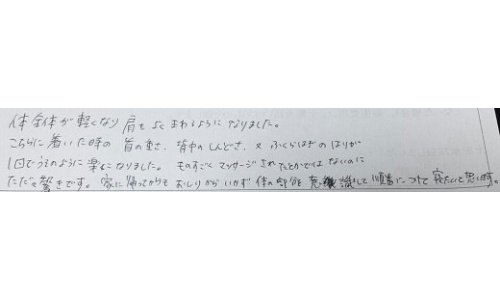 体全体が軽くなり肩もよくまわるようになりました。
こちらに着いた時の首の重さ、背中のしんどさ、又ふくらはぎのはりが
1回でうそのように楽になりました。ものすごくマッサージされたとかではないのに
ただ々驚きです。家に帰ってからもおしりからいかず体の部分を意識して順番につけて寝たいと思います。